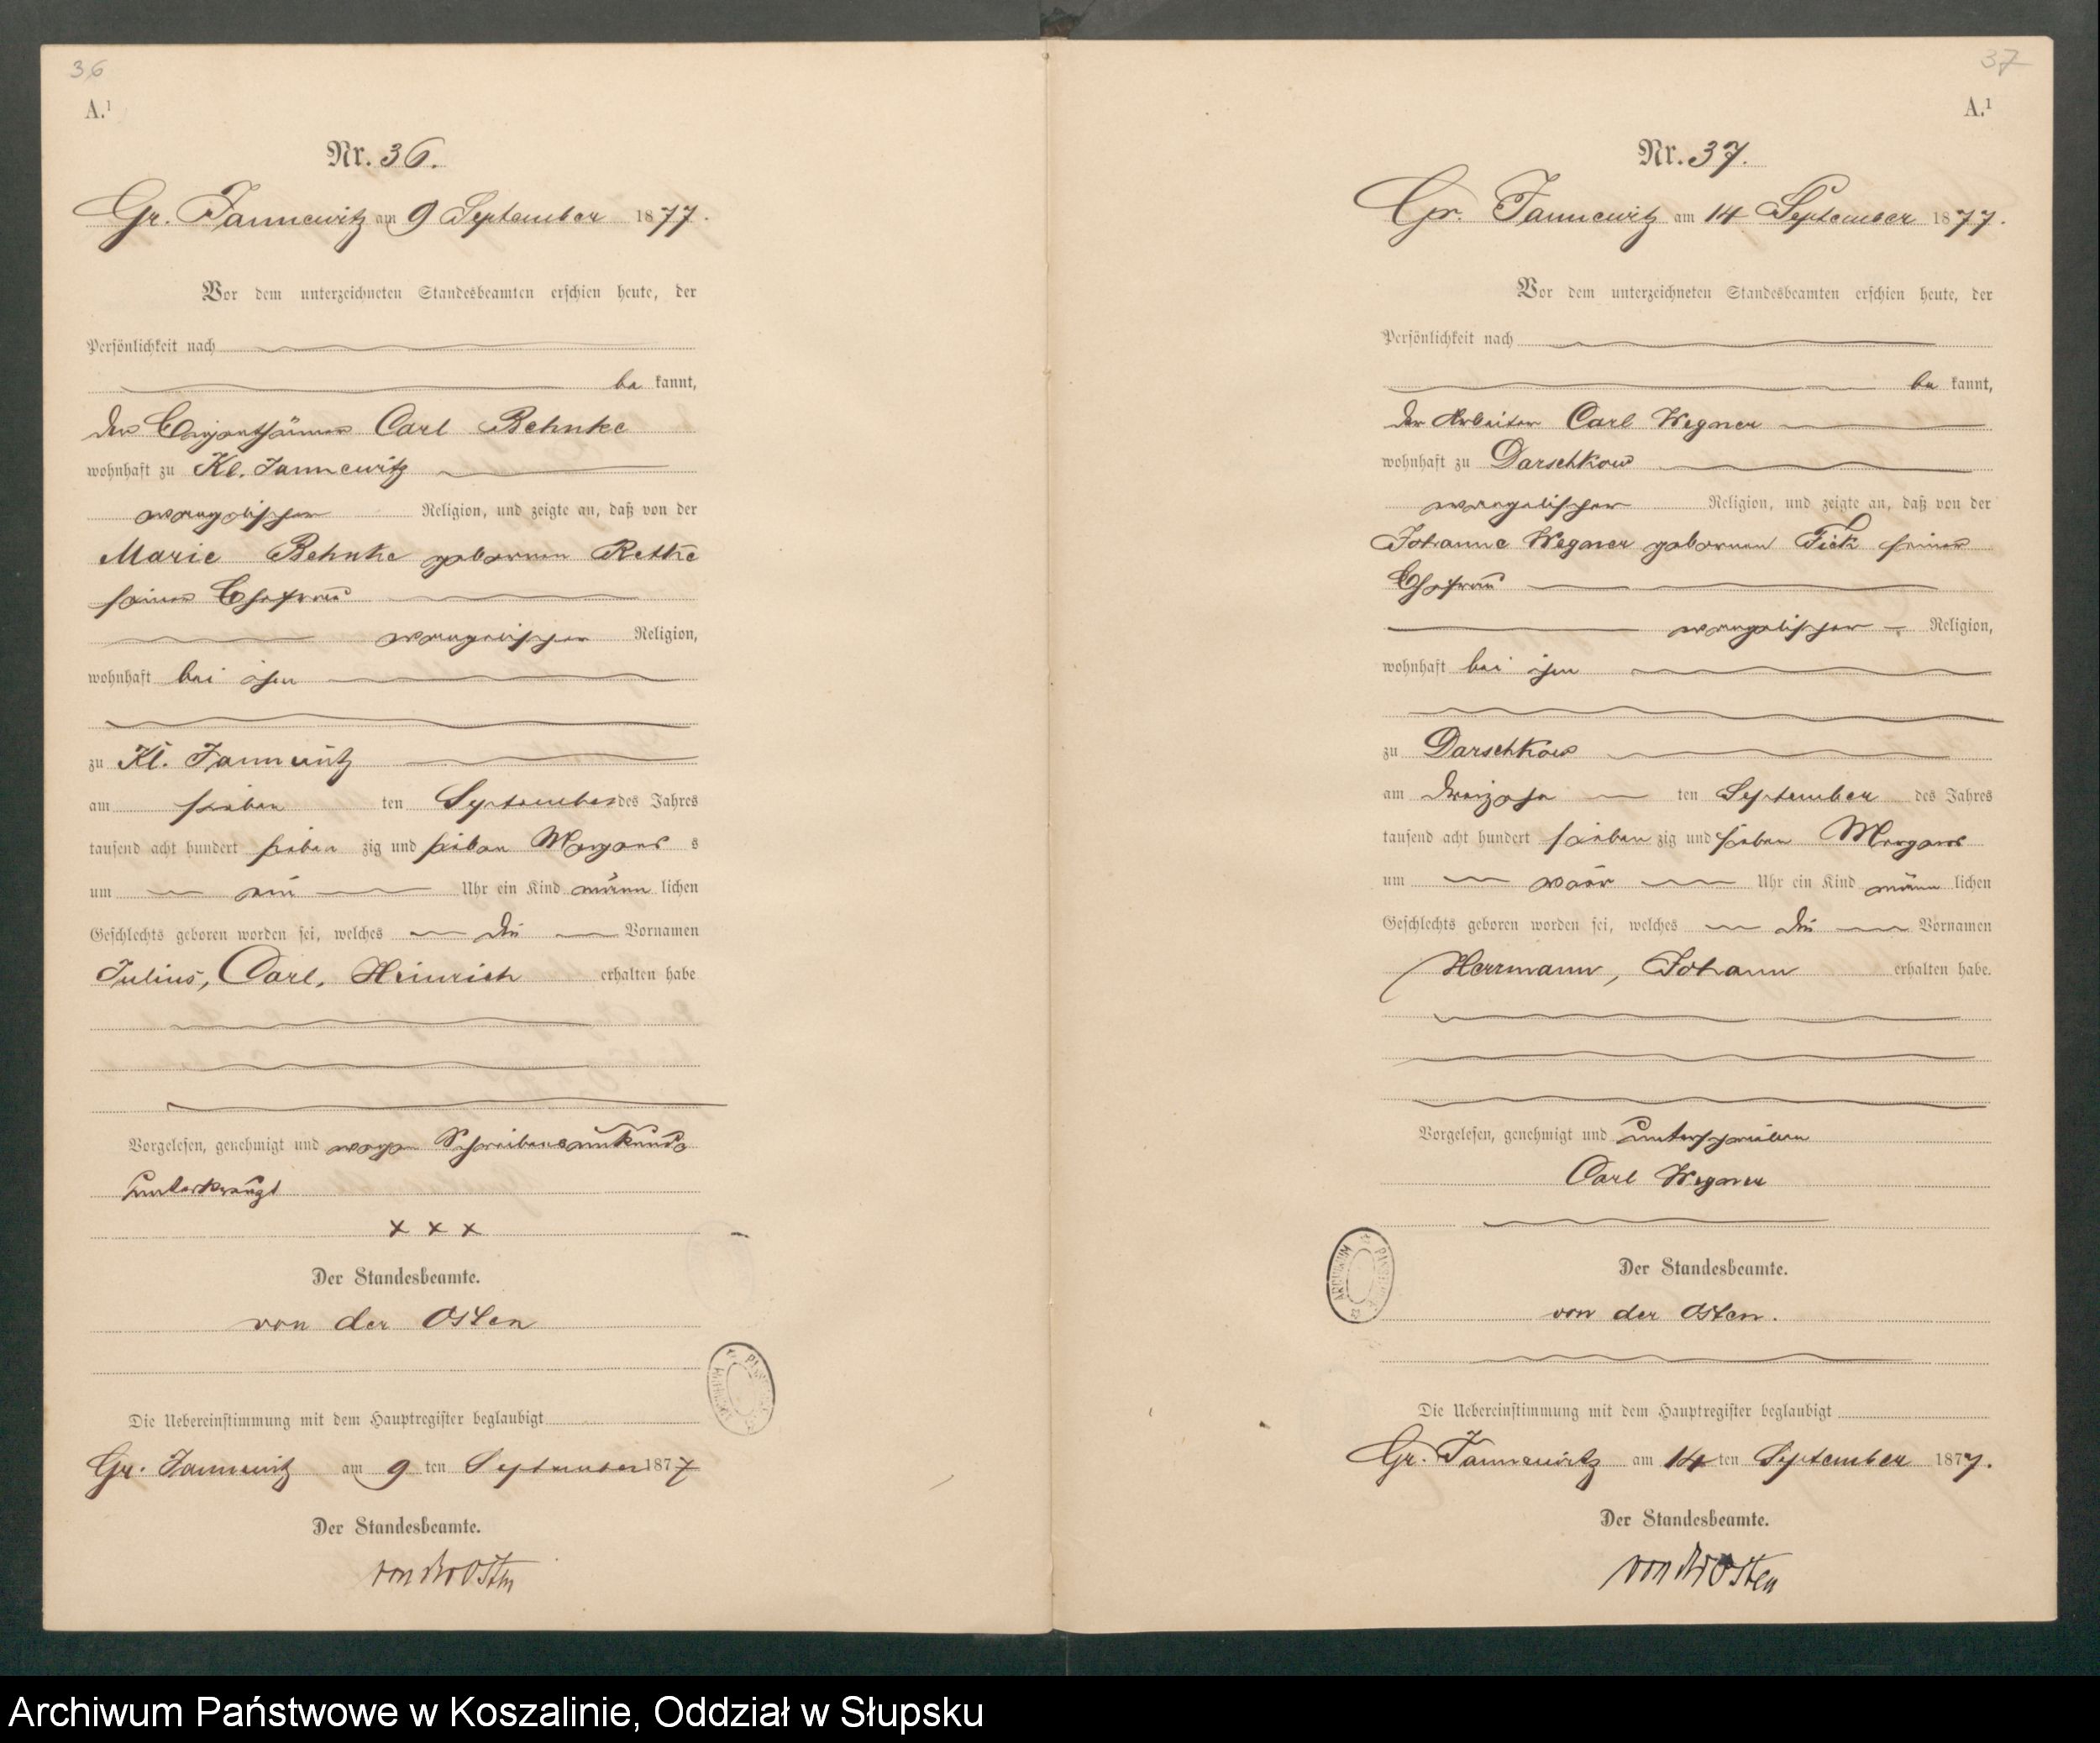 36
A.1
Nr. 36.
Gr. Jannewitz am 9 September 1877.
Vor dem unterzeichneten Standesbeamten erschien heute, der
Persönlichkeit nach
be kannt,
der Eigenthümer Carl Behnke
wohnhaft zu Kl. Jannewitz
evangelischer Religion, und zeigte an, daß von der
Marie Behnke geborenen Retke
seiner Ehefrau
evangelischer Religion,
wohnhaft bei ihm
zu Kl. Jannewitz
am sieben ten September des Jahres
tausend acht hundert sieben zig und sieben Morgens s
um Uhr ein Kind männ lichen
Geschlechts geboren worden sei, welches die Vornamen
Julius, Carl, Heinrich erhalten habe
Vorgelesen, genehmigt und wegen Schreibensunkunde
unterkreuzt
x x x
Der Standesbeamte.
von der Osten
Die Uebereinstimmung mit dem Hauptregister beglaubigt
Gr. Jannewitz am 9 ten September 1877
Der Standesbeamte.
von der Osten
37
A.1
Nr. 37.
Gr. Jannewitz am 14 September 1877.
Vor dem unterzeichneten Standesbeamten erschien heute, der
Persönlichkeit nach
be kannt,
der Arbeiter Carl Wegner
wohnhaft zu Darschkow
evangelischer Religion, und zeigte an, daß von der
Johanne Wegner geborenen Fick seiner
Ehefrau
evangelischer Religion,
wohnhaft bei ihm
zu Darschkow
am dreizehn ten September des Jahres
tausend acht hundert sieben zig und sieben Morgens
um vier Uhr ein Kind männ lichen
Geschlechts geboren worden sei, welches die Vornamen
Herrmann, Johann erhalten habe.
Vorgelesen, genehmigt und unterschrieben
Carl Wegner
Der Standesbeamte.
von der Osten.
Die Uebereinstimmung mit dem Hauptregister beglaubigt
Gr. Jannewitz am 14 ten September 1877.
Der Standesbeamte.
von der Osten
Archiwum Państwowe w Koszalinie, Oddział w Słupsku